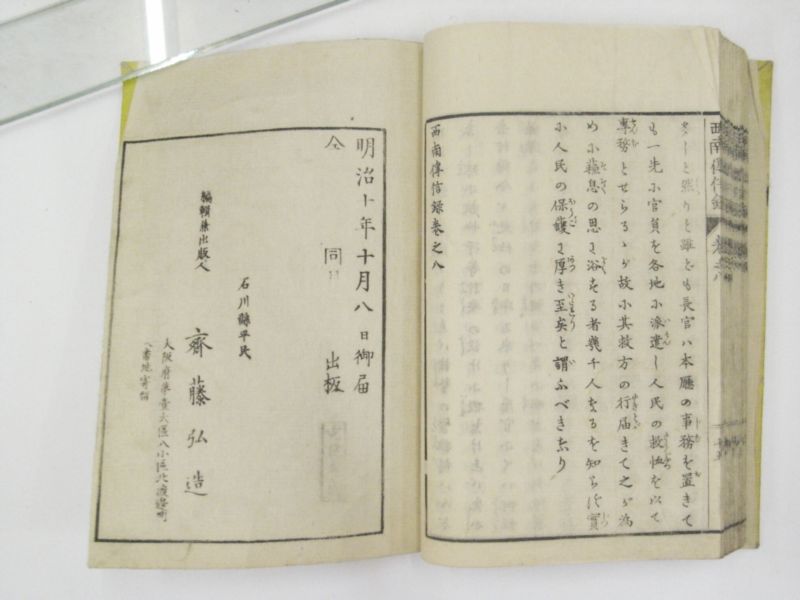 西南傳信録
多しと然りと雖ども長官ハ本廳の事務を置きて
も一先に官員を各地に派遣し人民の救恤を以て
専務とせらるゝが故に其救方の行届きて之が為
めに蘓息の思を浴する者幾千人なるを知らず實
に人民の保護を厚き至矣と謂ふべきなり
西南傳信録巻之八
明治十年十月八日御届
仝 同日 出板
石川縣平民
編輯兼出版人 齊藤弘造
大阪府第壹大區八小區北渡邊町
八番地寄留